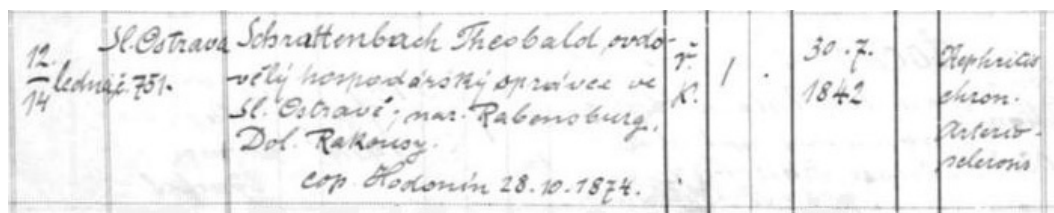 12./14 ledna
Sl. Ostrava
č. 751.
Schrattenbach Theobald, ovdo-
vělý hospodářský správce ve
Sl. Ostravě; nar. Rabensburg,
Dol. Rakousy.
cop. Hodonín 28.10.1874.
ř.
k.
1
30.7.
1842
Nephritis
chron.
Arterio-
sclerosis